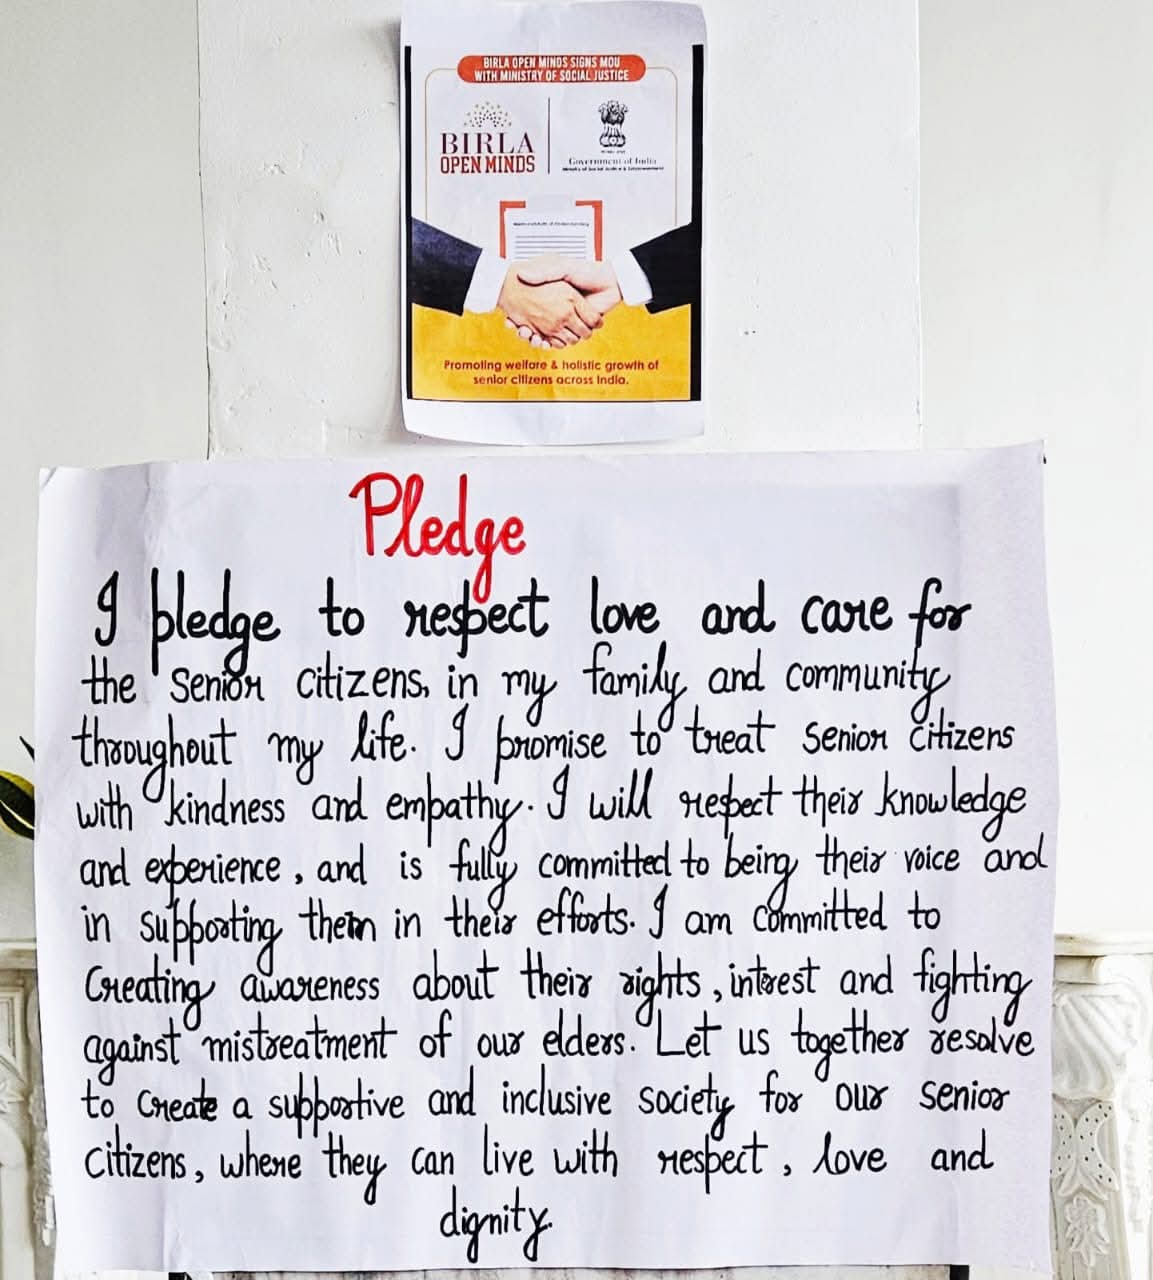 BIRLA OPEN MINDS SIGNS MOU
WITH MINISTRY OF SOCIAL JUSTICE
BIRLA
OPEN MINDS
Government of India
Ministry of Social Justice & Empowerment
Memorandum of Understanding
Promoting welfare & holistic growth of
senior citizens across India.
Pledge
I pledge to respect love and care for
the senior citizens, in my family and community
throughout my life. I promise to treat senior citizens
with kindness and empathy. I will respect their knowledge
and experience, and is fully committed to being their voice and
in supporting them in their efforts. I am committed to
Creating awareness about their rights, interest and fighting
against mistreatment of our elders. Let us together resolve
to create a supportive and inclusive society for our senior
citizens, where they can live with respect, love and
dignity.